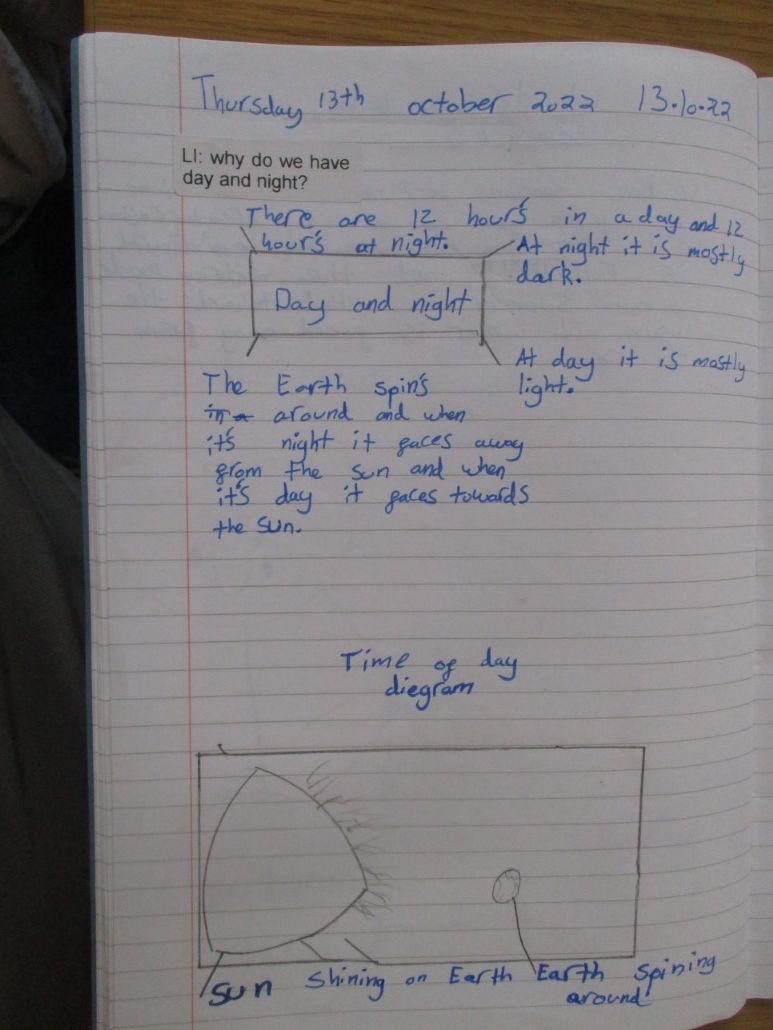 Thursday 13th october 2022 13.10.22
LI: why do we have
day and night?
There are 12 hour's in a day and 12
hour's at night.
At night it is mostly
dark.
Day and night
At day it is mostly
light.
The Earth spin's
in a around and when
it's night it faces away
from the sun and when
it's day it faces towards
the sun.
Time of day
diegram
Sun Shining on Earth Earth spining
around